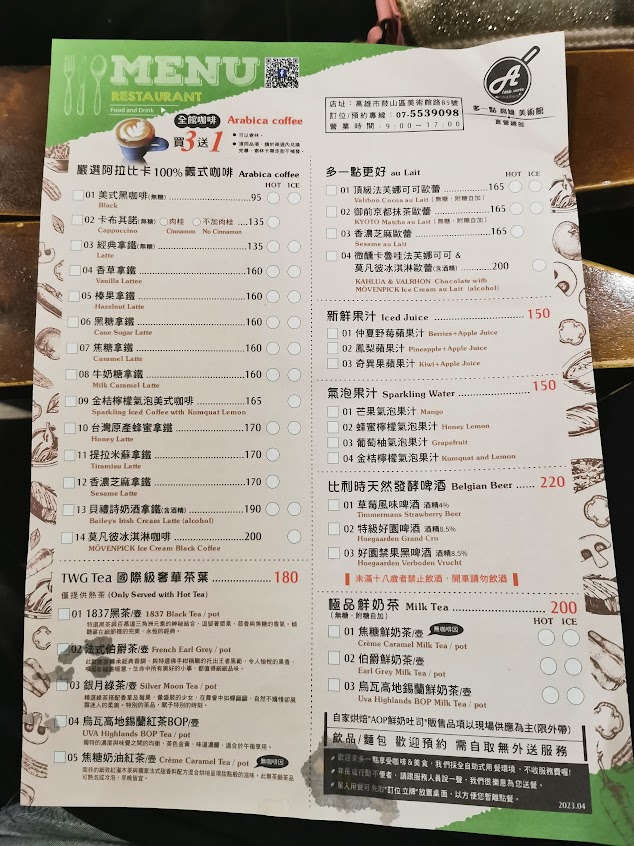 MENU
RESTAURANT
Food and Drink
全館咖啡 Arabica coffee
買3送1
A
little more
多一點 高雄 美術館
直營總部
店址：高雄市鼓山區美術館路85號
訂位/預約專線：07-5539098
營業時間：9:00~17:00
嚴選阿拉比卡100%義式咖啡 Arabica coffee
HOT ICE
01 美式黑咖啡(無糖) 95
Black
02 卡布其諾(無糖) 肉桂 不加肉桂 135
Cappuccino Cinnamon No Cinnamon
03 經典拿鐵(無糖) 135
Latte
04 香草拿鐵 160
Vanilla Lattee
05 榛果拿鐵 160
Hazelnut Latte
06 黑糖拿鐵 160
Cane Sugar Latte
07 焦糖拿鐵 160
Caramel Latte
08 牛奶糖拿鐵 160
Milk Caramel Latte
09 金桔檸檬氣泡美式咖啡 165
Sparkling Iced Coffee with Kumquat Lemon
10 台灣原產蜂蜜拿鐵 170
Honey Latte
11 提拉米蘇拿鐵 170
Tiramisu Latte
12 香濃芝麻拿鐵 170
Sesame Latte
13 貝禮詩奶酒拿鐵(含酒精) 190
Bailey's Irish Cream Latte (alcohol)
14 莫凡彼冰淇淋咖啡 200
MÖVENPICK Ice Cream Black Coffee
TWG Tea 國際級奢華茶葉 180
僅提供熱茶 (Only Served with Hot Tea)
01 1837黑茶/壺 1837 Black Tea / pot
02 法式伯爵茶/壺 French Earl Grey / pot
03 銀月綠茶/壺 Silver Moon Tea / pot
04 烏瓦高地錫蘭紅茶BOP/壺
UVA Highlands BOP Tea / pot
05 焦糖奶油紅茶/壺 Crème Caramel Tea / pot 無咖啡因
多一點更好 au Lait
HOT ICE
01 頂級法芙娜可可歐蕾 165
Valrhon Cocoa au Lait (無糖，附糖自加)
02 御前京都抹茶歐蕾 165
KYOTO Matcha au Lait (無糖，附糖自加)
03 香濃芝麻歐蕾 165
Sesame au Lait
04 微醺卡魯哇法芙娜可可 &
莫凡彼冰淇淋歐蕾(含酒精) 200
KAHLUA & VALRHON Chocolate with
MÖVENPICK Ice Cream au Lait (alcohol)
新鮮果汁 Iced Juice 150
01 仲夏野莓蘋果汁 Berries+Apple Juice
02 鳳梨蘋果汁 Pineapple+Apple Juice
03 奇異果蘋果汁 Kiwi+Apple Juice
氣泡果汁 Sparkling Water 150
01 芒果氣泡果汁 Mango
02 蜂蜜檸檬氣泡果汁 Honey Lemon
03 葡萄柚氣泡果汁 Grapefruit
04 金桔檸檬氣泡果汁 Kumquat and Lemon
比利時天然發酵啤酒 Belgian Beer 220
01 草莓風味啤酒 酒精4%
Timmermans Strawberry Beer
02 特級好園啤酒 酒精8.5%
Hoegaarden Grand Cru
03 好園禁果黑啤酒 酒精8.5%
Hoegaarden Verboden Vrucht
未滿十八歲者禁止飲酒，開車請勿飲酒
極品鮮奶茶 Milk Tea 200
(無糖，附糖自加)
HOT ICE
01 焦糖鮮奶茶/壺 無咖啡因
Crème Caramel Milk Tea / pot
02 伯爵鮮奶茶/壺
Earl Grey Milk Tea / pot
03 烏瓦高地錫蘭鮮奶茶/壺
Uva Highlands BOP Milk Tea / pot
自家烘焙"AOP鮮奶吐司"販售品項以現場供應為主(限外帶)
飲品/麵包 歡迎預約 需自取無外送服務
歡迎來多一點享受咖啡&美食，我們採全自助式用餐環境，不收服務費喔！
年長或行動不便者，請跟服務人員說一聲，我們很樂意為您送餐。
單人用餐可先取"訂位立牌"放置桌面，以方便您暫離點餐。
2023.04